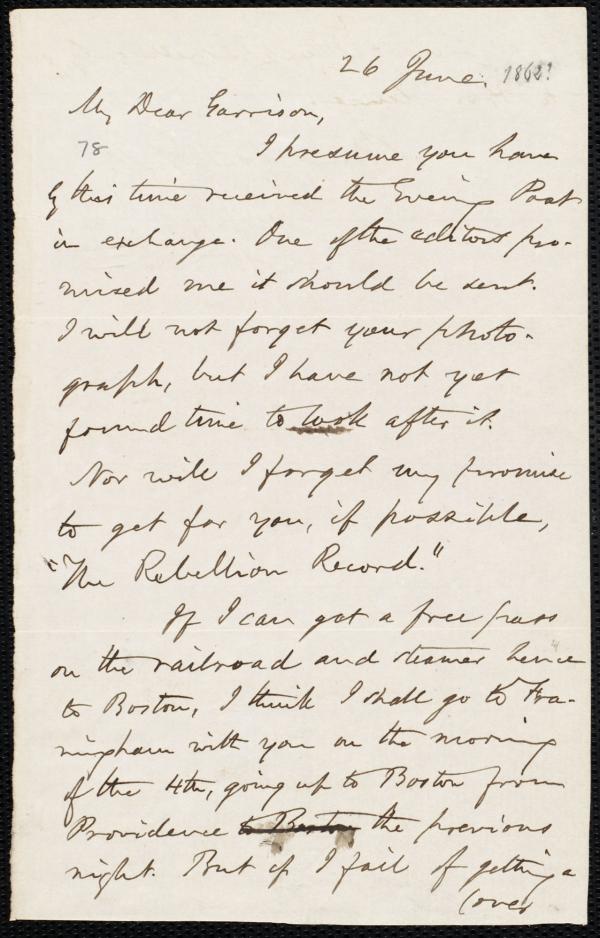 26 June. 1862?
My Dear Garrison,
78
I presume you have
by this time received the Evening Post
in exchange. One of the editors pro-
mised me it should be sent.
I will not forget your photo-
graph, but I have not yet
found time to look after it.
Nor will I forget my promise
to get for you, if possible,
"The Rebellion Record."
If I can get a free pass
on the railroad and steamer hence
to Boston, I think I shall go to Fra-
mingham with you on the morning
of the 4th, going up to Boston from
Providence to Boston the previous
night. But if I fail of getting a
(over